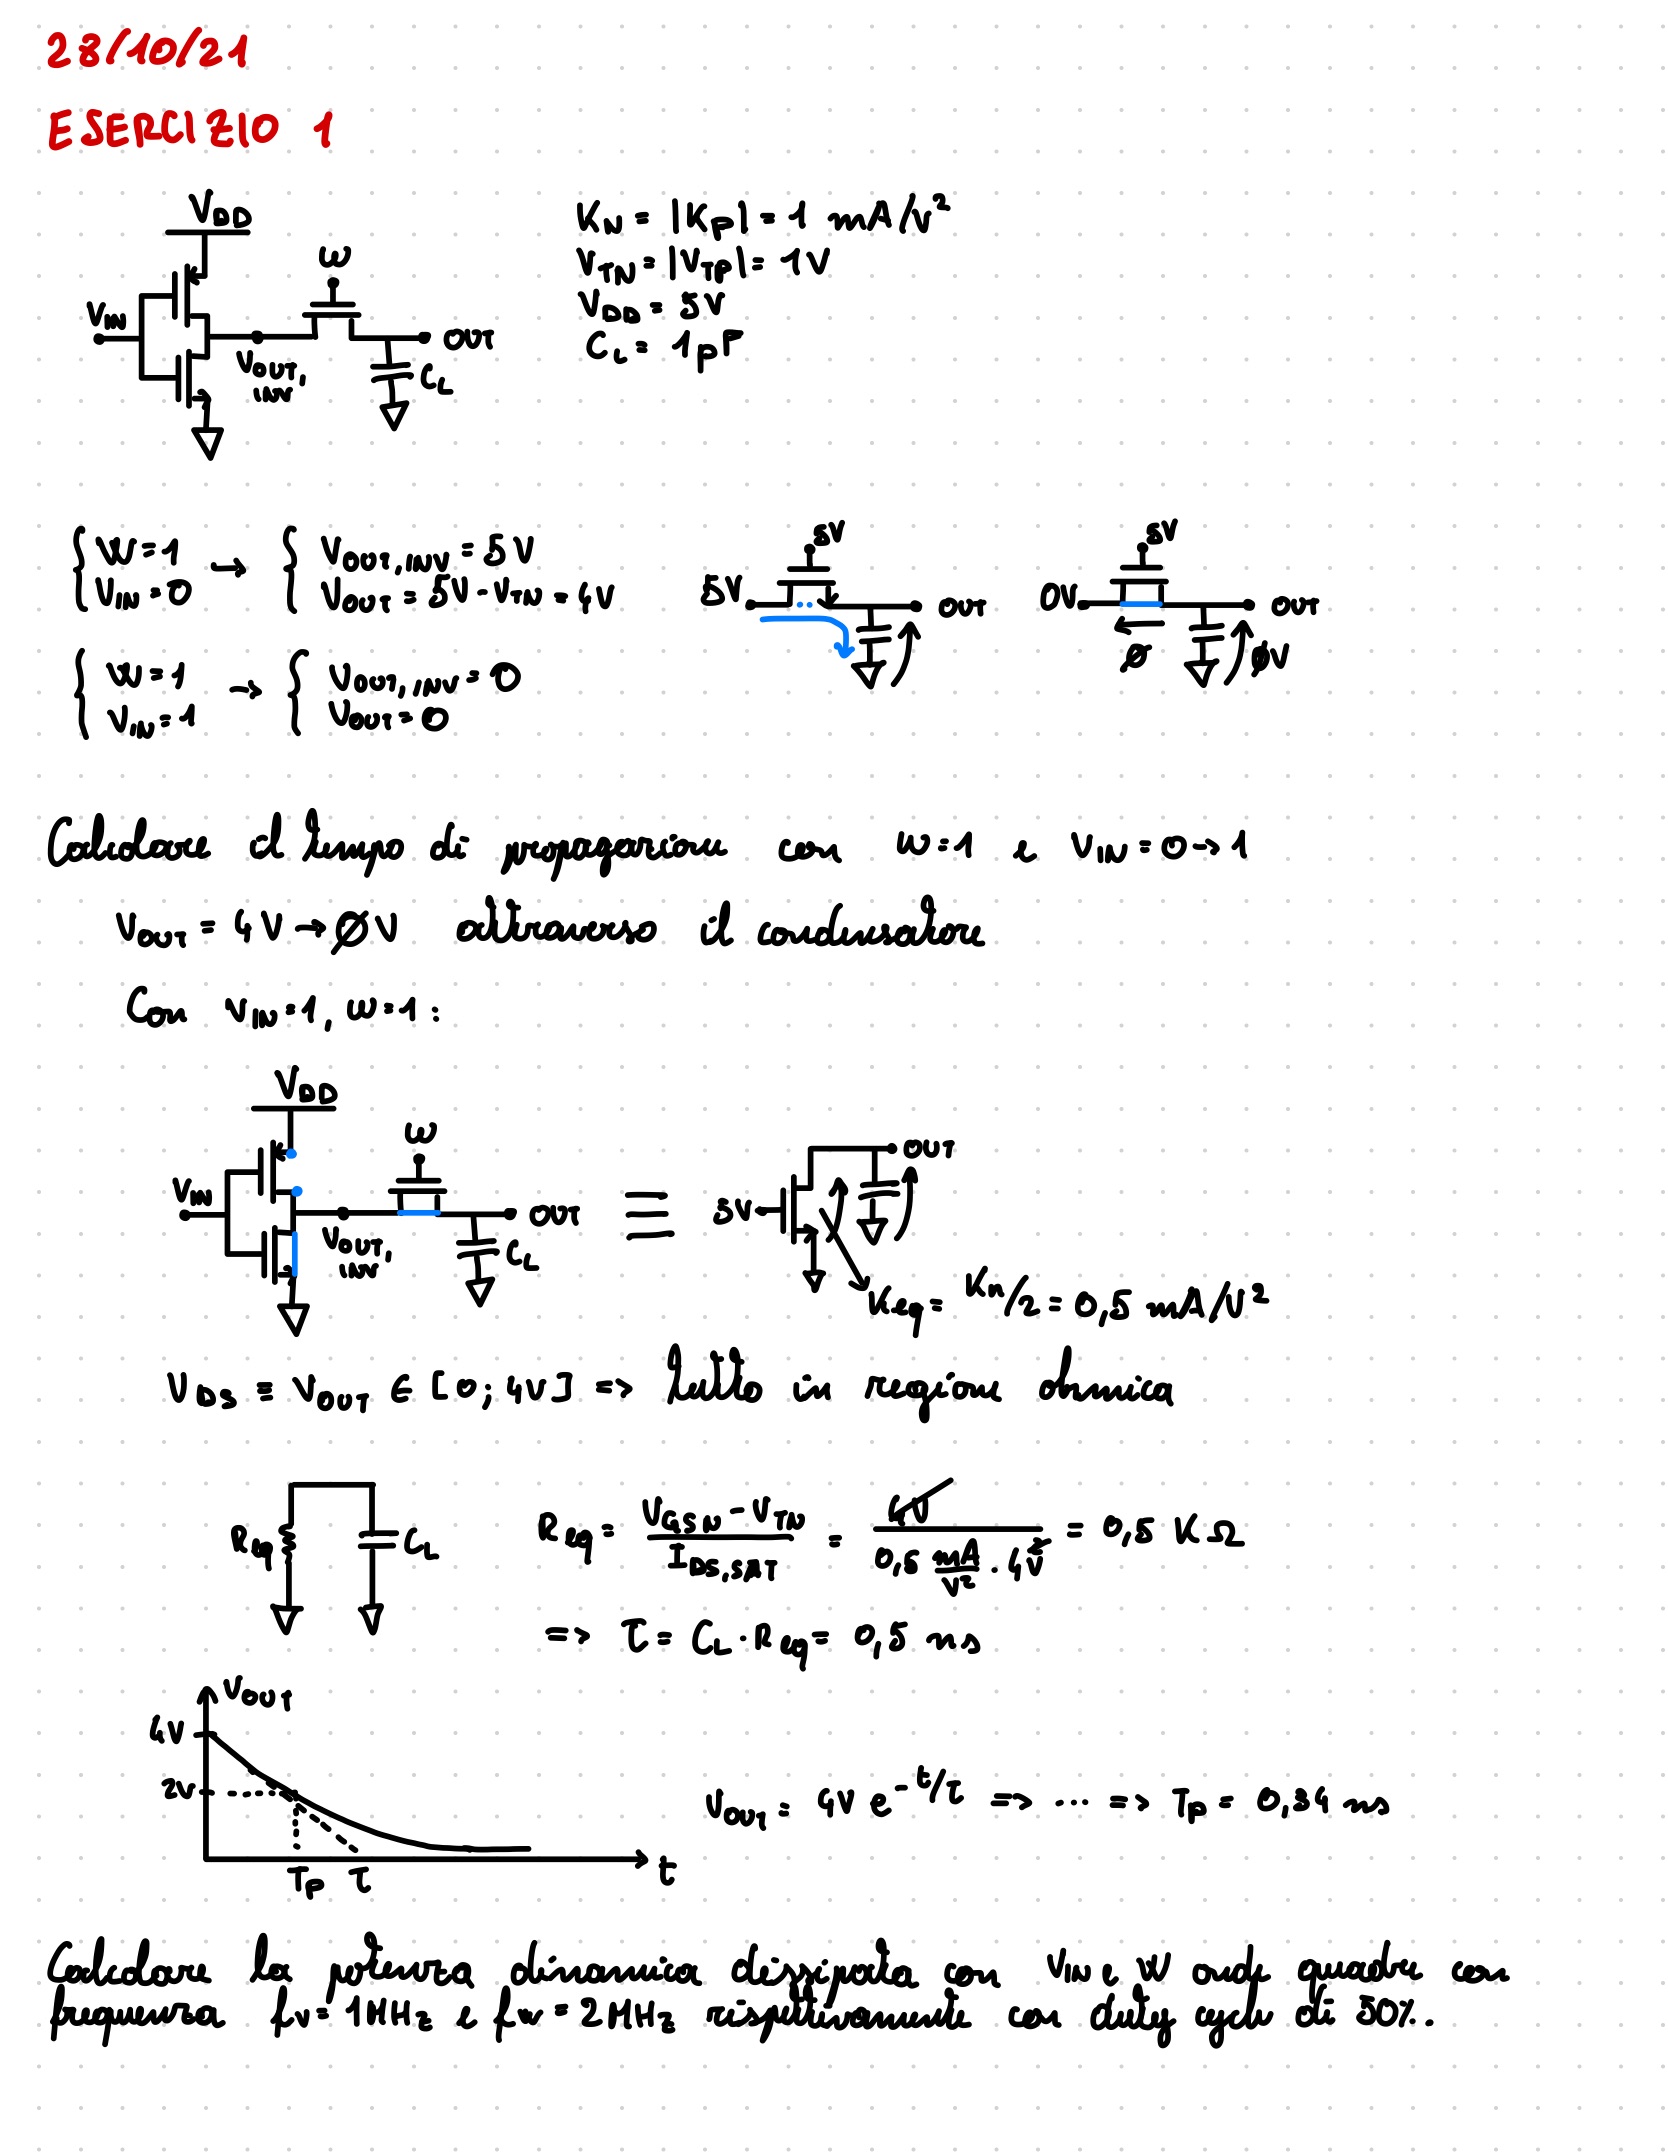 28/10/21
ESERCIZIO 1
VDD
W
VIN
VOUT, INV
OUT
CL
KN = |KP| = 1 mA/V²
VTN = |VTP| = 1V
VDD = 5V
CL = 1pF
{ W=1 VIN=0 → { VOUT,INV = 5V VOUT = 5V - VTN = 4V
5V
5V
OUT
5V
0V
OUT
Ø
ØV
{ W=1 VIN=1 → { VOUT,INV = 0 VOUT = 0
Calcolare il tempo di propagazione con W=1 e VIN = 0→1
VOUT = 4V → ØV attraverso il condensatore
Con VIN=1, W=1:
VDD
W
VIN
VOUT, INV
OUT
CL
≡
5V
OUT
Keq = Kn/2 = 0,5 mA/V²
VDS ≡ VOUT ∈ [0; 4V] => tutto in regione ohmica
Req
CL
Req = (VGSN - VTN)/IDS,SAT = 4V/(0,5 mA/V² · 4V²) = 0,5 KΩ
=> τ = CL · Req = 0,5 ns
VOUT
4V
2V
TP τ
t
VOUT = 4V e^-t/τ => ... => TP = 0,34 ns
Calcolare la potenza dinamica dissipata con VIN e W onde quadre con
frequenza fv = 1MHz e fw = 2MHz rispettivamente con duty cycle di 50%.